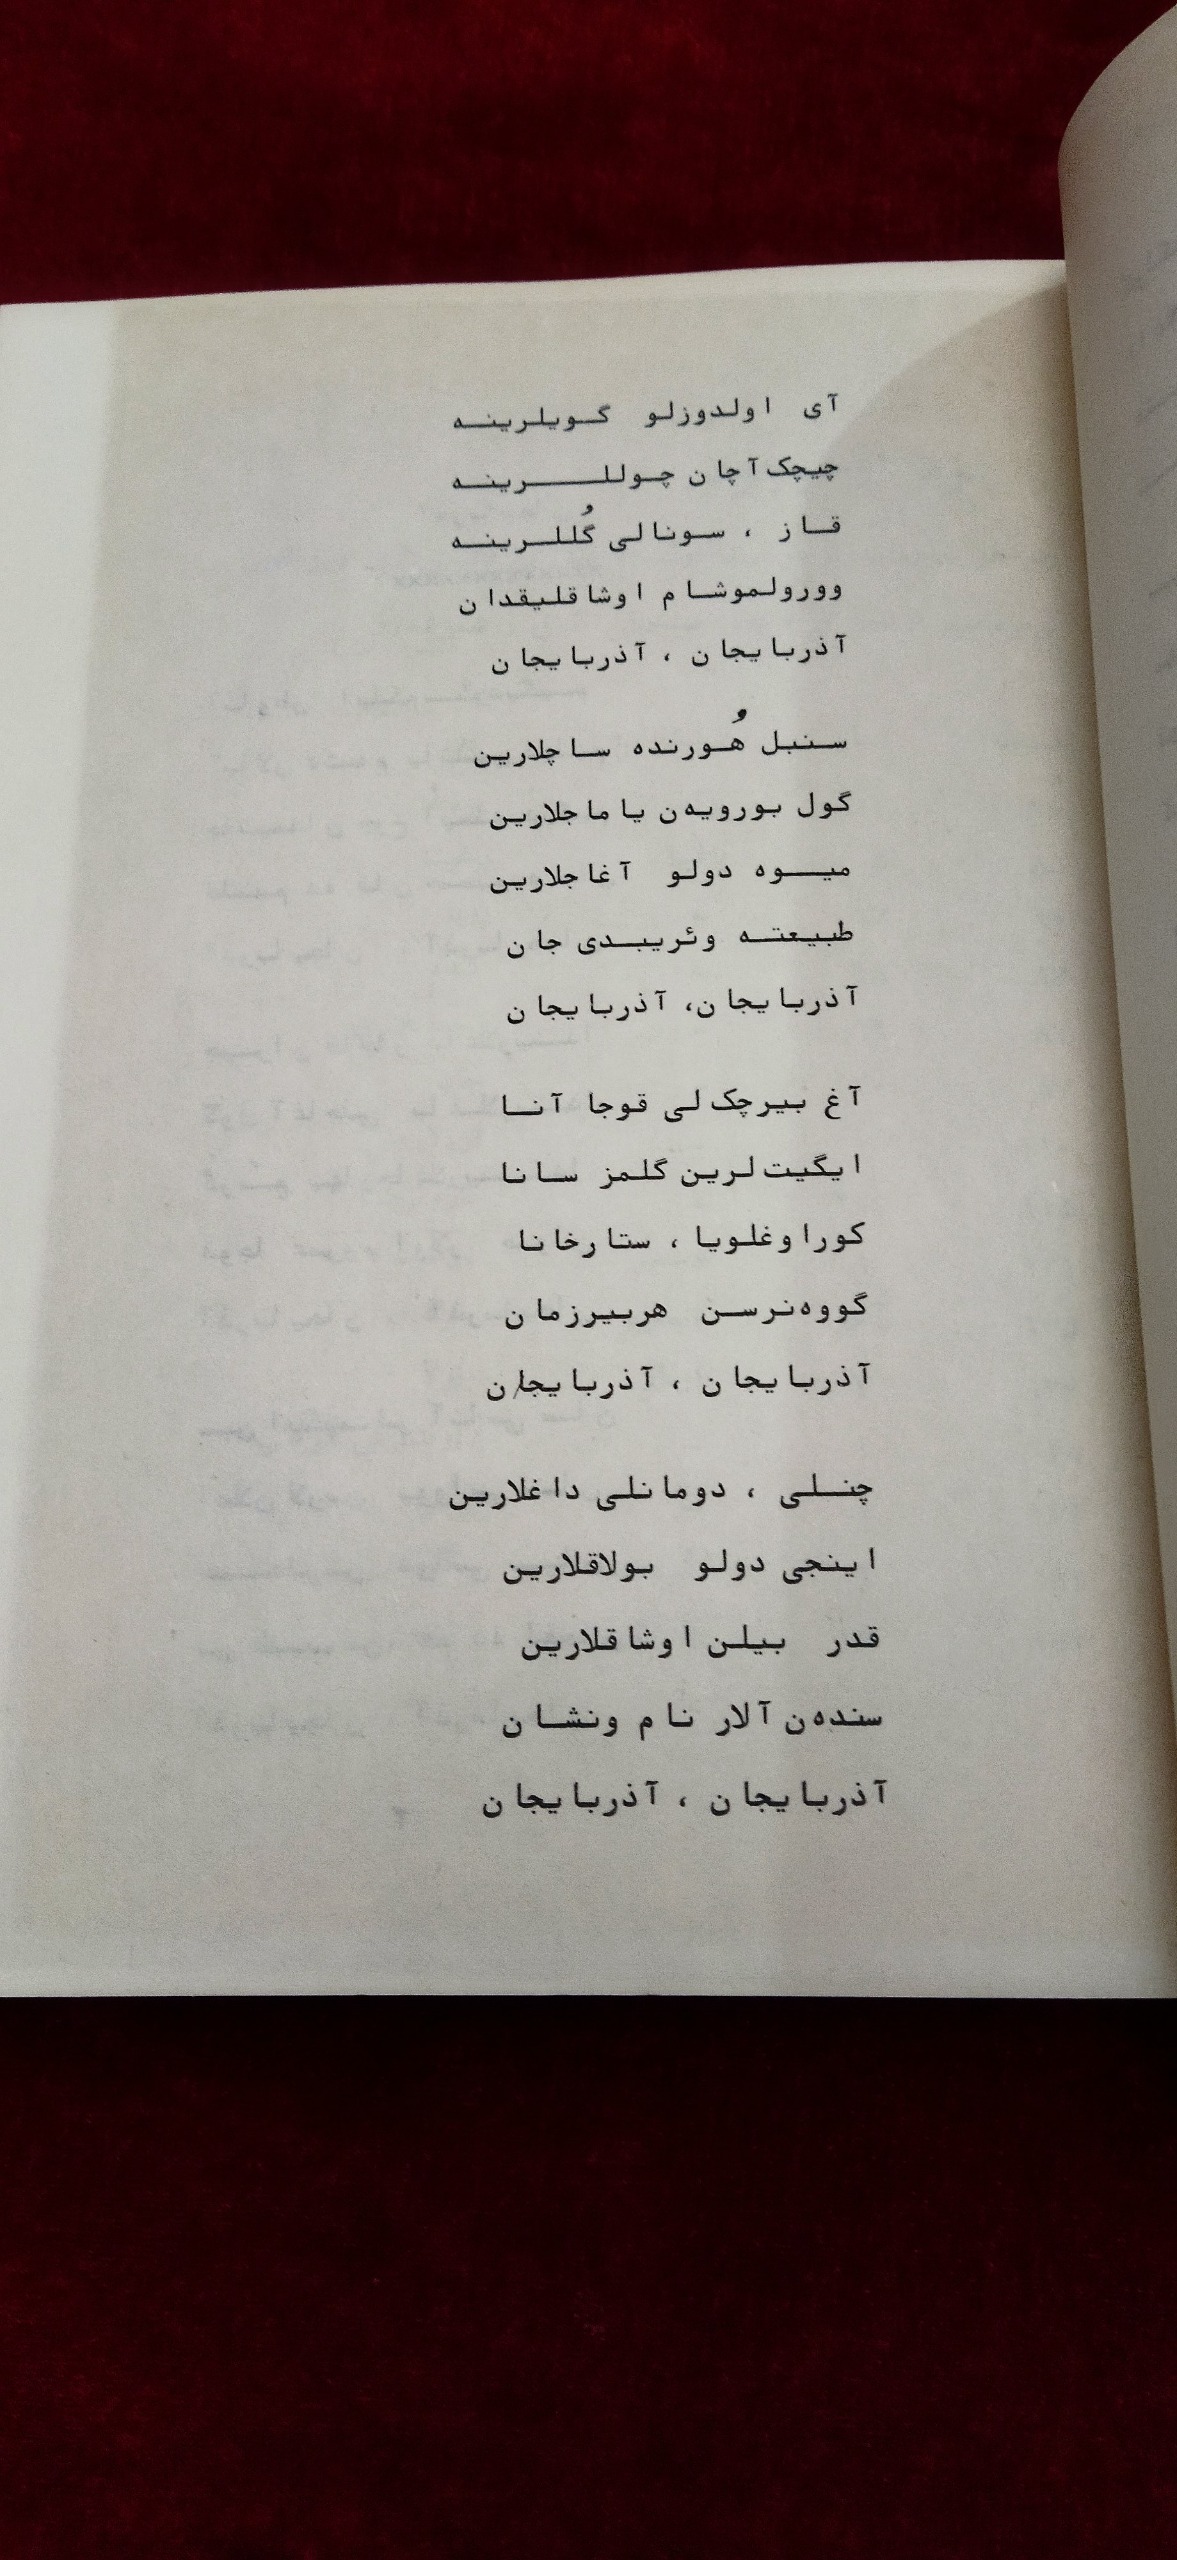 آی اولدوزلو گویلرینه
چیچک آچان چوللرینه
قاز ، سونالی گُللرینه
وورولموشام اوشاقلیقدان
آذربایجان ، آذربایجان
سنبل هُورنده ساچلارین
گول بورویه‌ن یاماجلارین
میوه دولو آغاجلارین
طبیعته وئریبدی جان
آذربایجان، آذربایجان
آغ بیرچک‌لی قوجا آنا
ایگیت‌لرین گلمز سانا
کوراوغلویا ، ستارخانا
گووه‌نرسن هربیرزمان
آذربایجان ، آذربایجان
چنلی ، دومانلی داغلارین
اینجی دولو بولاقلارین
قدر بیلن اوشاقلارین
سنده‌ن آلار نام ونشان
آذربایجان ، آذربایجان